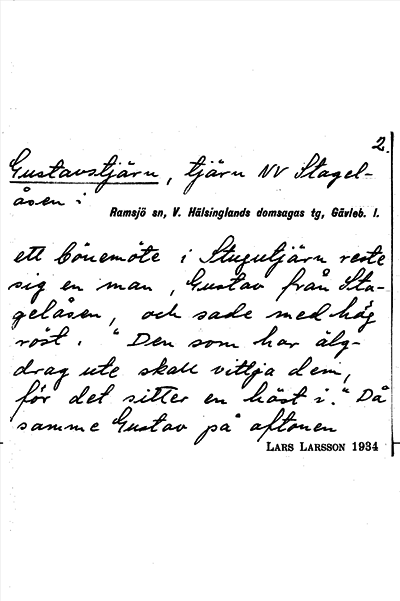 2.
Gustavstjärn, tjärn NV Stagel-
åsen:
Ramsjö sn, V. Hälsinglands domsagas tg, Gävleb. l.
ett bönemöte i Stugutjärn reste
sig en man, Gustav från Sta-
gelåsen, och sade med hög
röst. "Den som har älg-
drag ute skall vittja dem,
för det sitter en häst i." Då
samme Gustav på aftonen
LARS LARSSON 1934